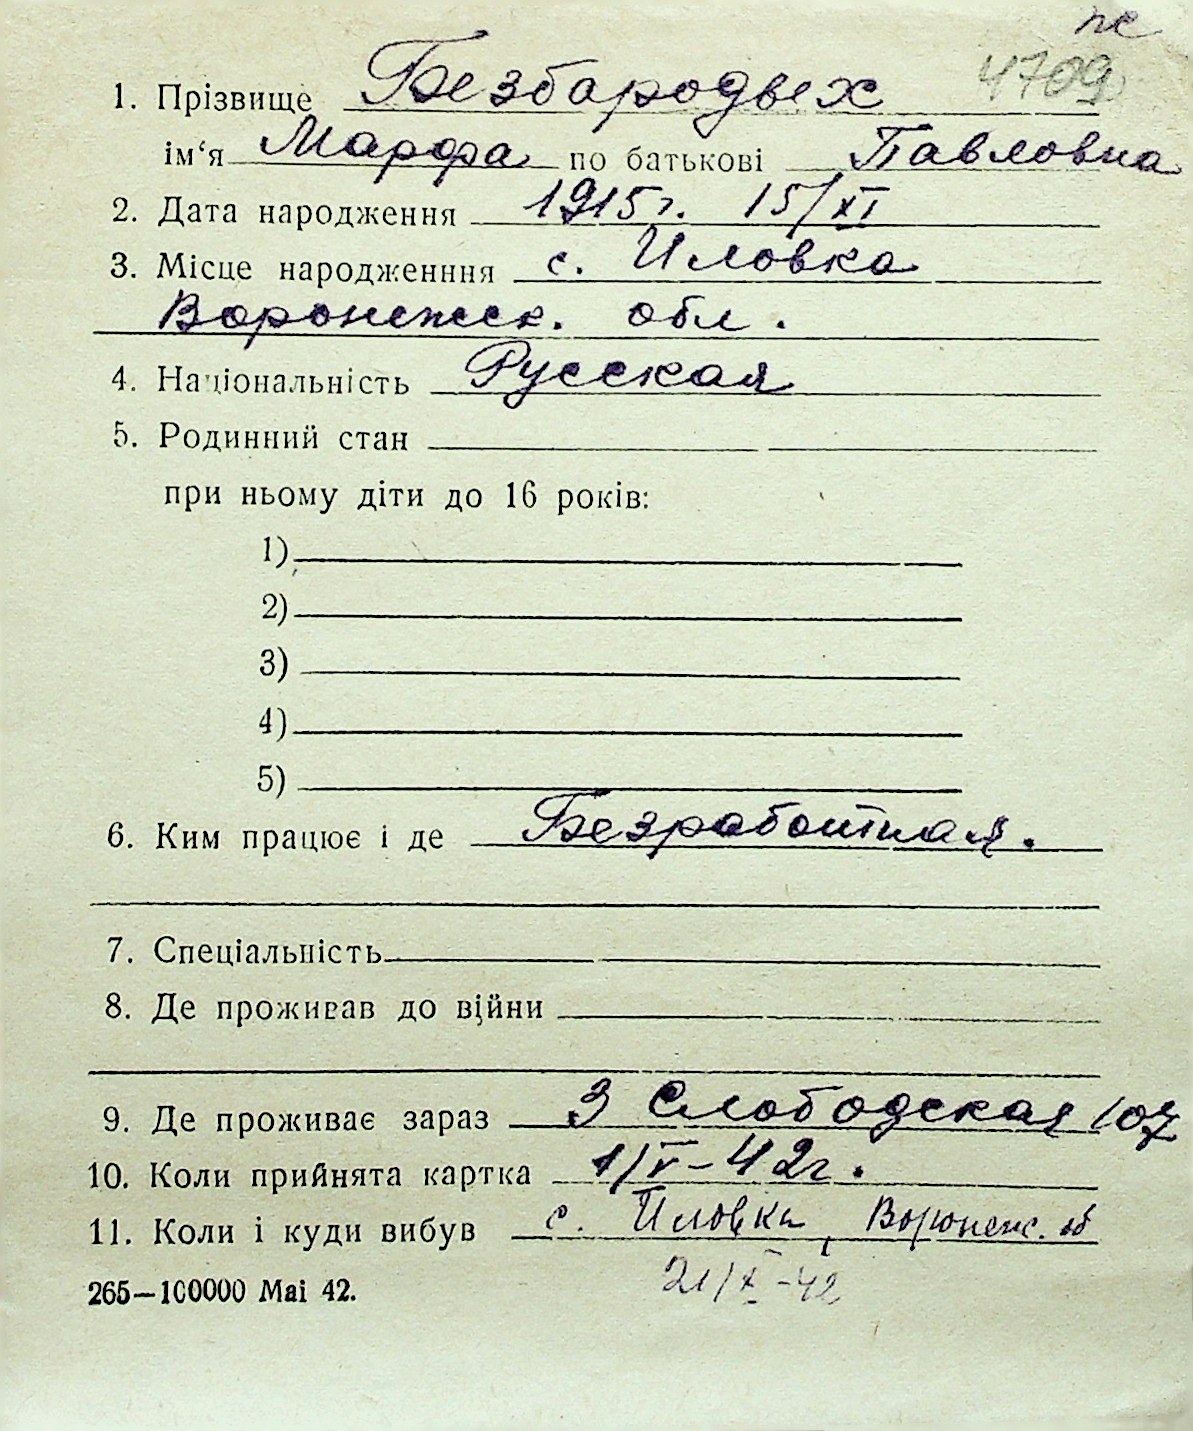 пс
4709
1. Прізвище Безбародвех
ім‘я Марфа по батькові Павловна
2. Дата народження 1915 г. 15/XI
3. Місце народженння с. Иловка
Воронежск. обл.
4. Національність Русская
5. Родинний стан
при ньому діти до 16 років:
1)
2)
3)
4)
5)
6. Ким працює і де Безработная.
7. Спеціальність
8. Де проживав до війни
9. Де проживає зараз 3 Слободская 107
10. Коли прийнята картка 1/V-42г.
11. Коли і куди вибув с. Иловка, Воронеж. об
21/X-42
265—100000 Mai 42.